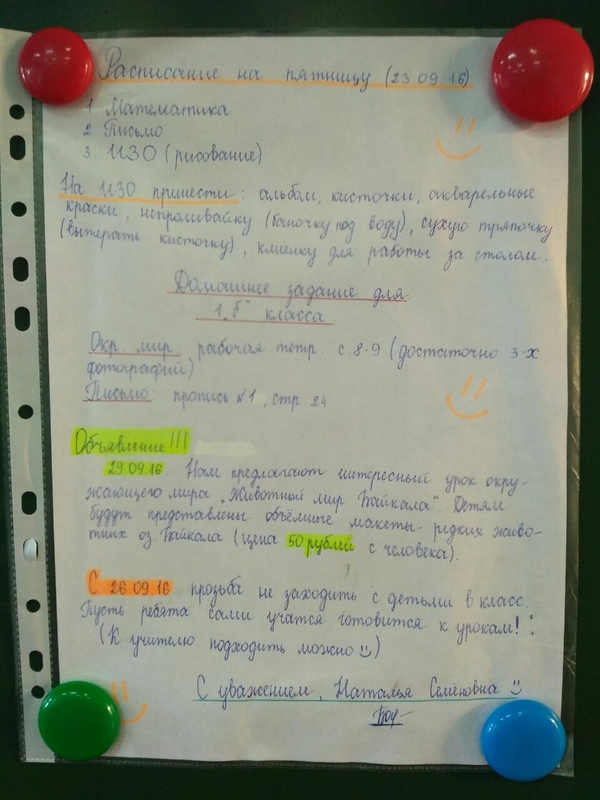 Расписание на пятницу (23 09 16)
1 Математика
2 Письмо
3. ИЗО (рисование)
На ИЗО принести: альбом, кисточки, акварельные
краски, непроливайку (баночку под воду), сухую тряпочку
(вытерать кисточку), клиёнку для работы за столом.
Домашнее задание для
1 „б" класса
Окр. мир: рабочая тетр. с. 8-9 (достаточно 3-х
фотографий)
Письмо: пропись №1, стр 24
Объявление!!!
29.09.16 Нам предлагают интересный урок окру-
жающего мира „Животный мир Байкала". Детям
будут представлены объёмные макеты редких живо-
тных оз. Байкала (цена 50 рублей с человека).
С 26.09.16 прозьба не заходить с детьми в класс.
Пусть ребята сами учатся готовится к урокам!
(К учителю подходить можно)
С уважением, Наталья Семёновна